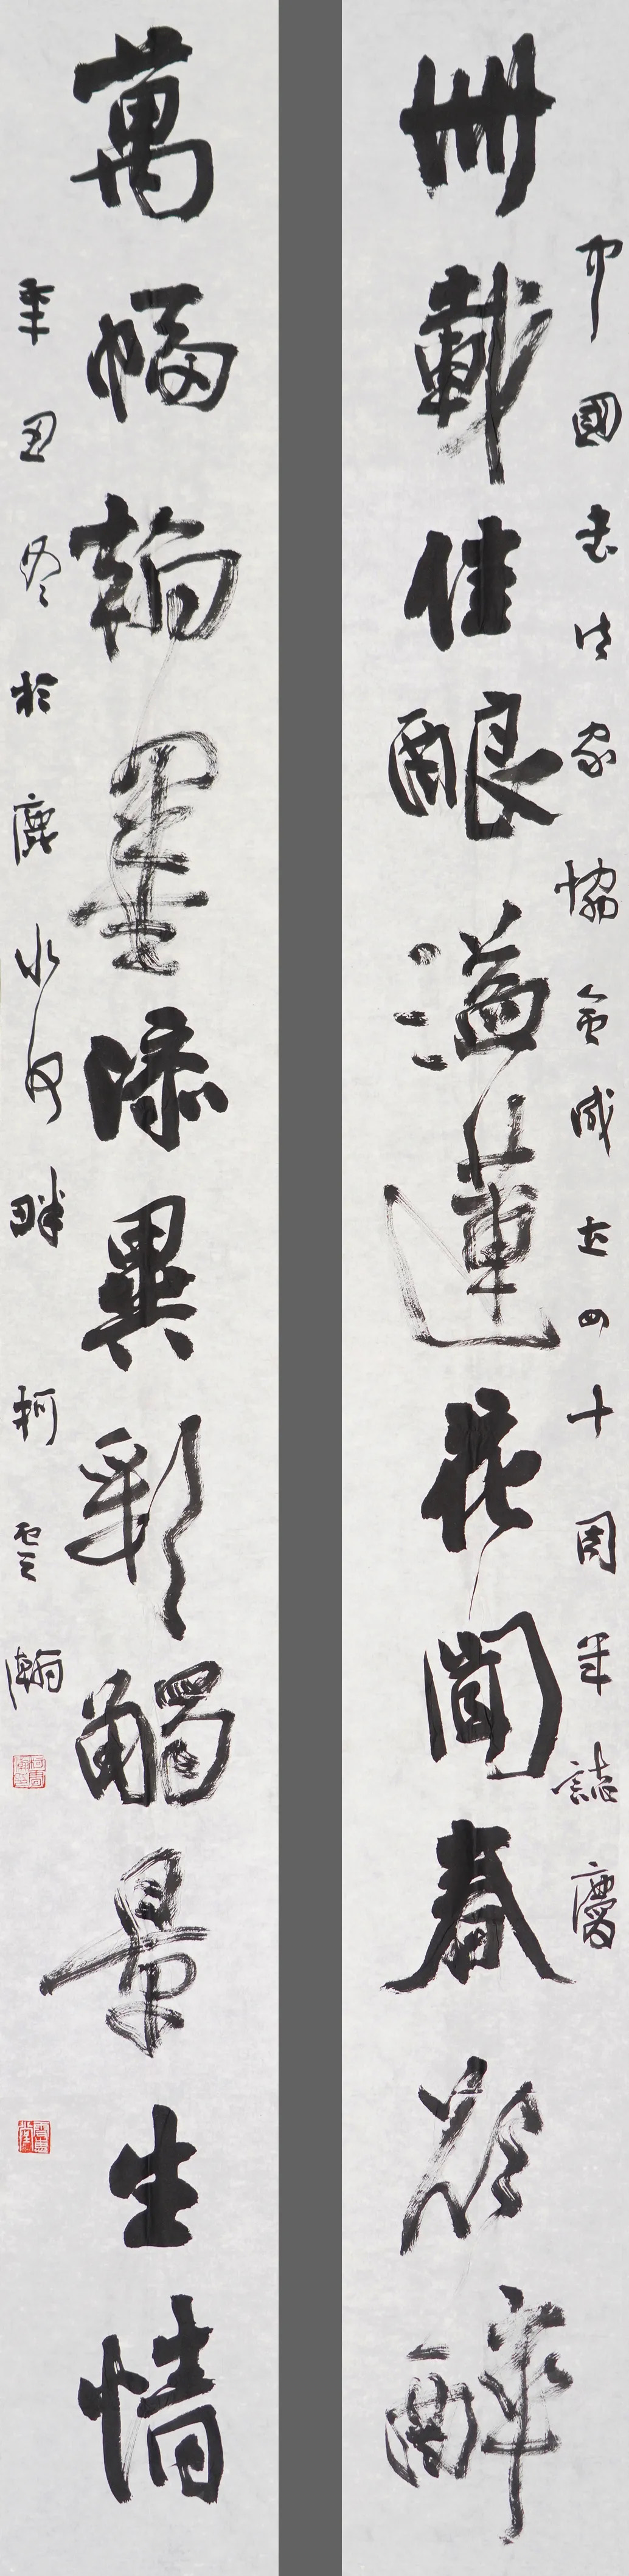 中國書法家協會成立四十周年誌慶
卌載佳酿溢蓮花聞春欲醉
萬幅翰墨添異彩觸景生情
辛丑冬於鹿水河畔柯雲瀚